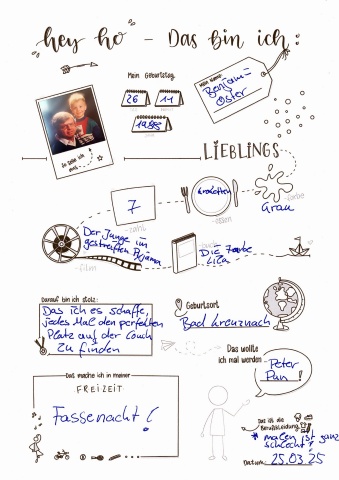 hey ho - Das bin ich:
Mein Geburtstag
Mein Name:
26 11
1983
Benjamin
Oster
So sehe ich
aus
LIEBLINGS
7
-zahl
Kroketten
-essen
-farbe
Grau
Der Junge im
gestreiften Pyjama
-film
-buch
Die Farbe
Lila
Darauf bin ich stolz:
Das ich es schaffe,
jedes Mal den perfekten
Platz auf der Couch
zu finden
Geburtsort
Bad Kreuznach
Das wollte
ich mal werden
Peter
Pan!
Das mache ich in meiner
FREIZEIT
Fassenacht!
Das ist die
Berufskleidung
* malen ist ganz
schlecht!
Datum: 25.03.25